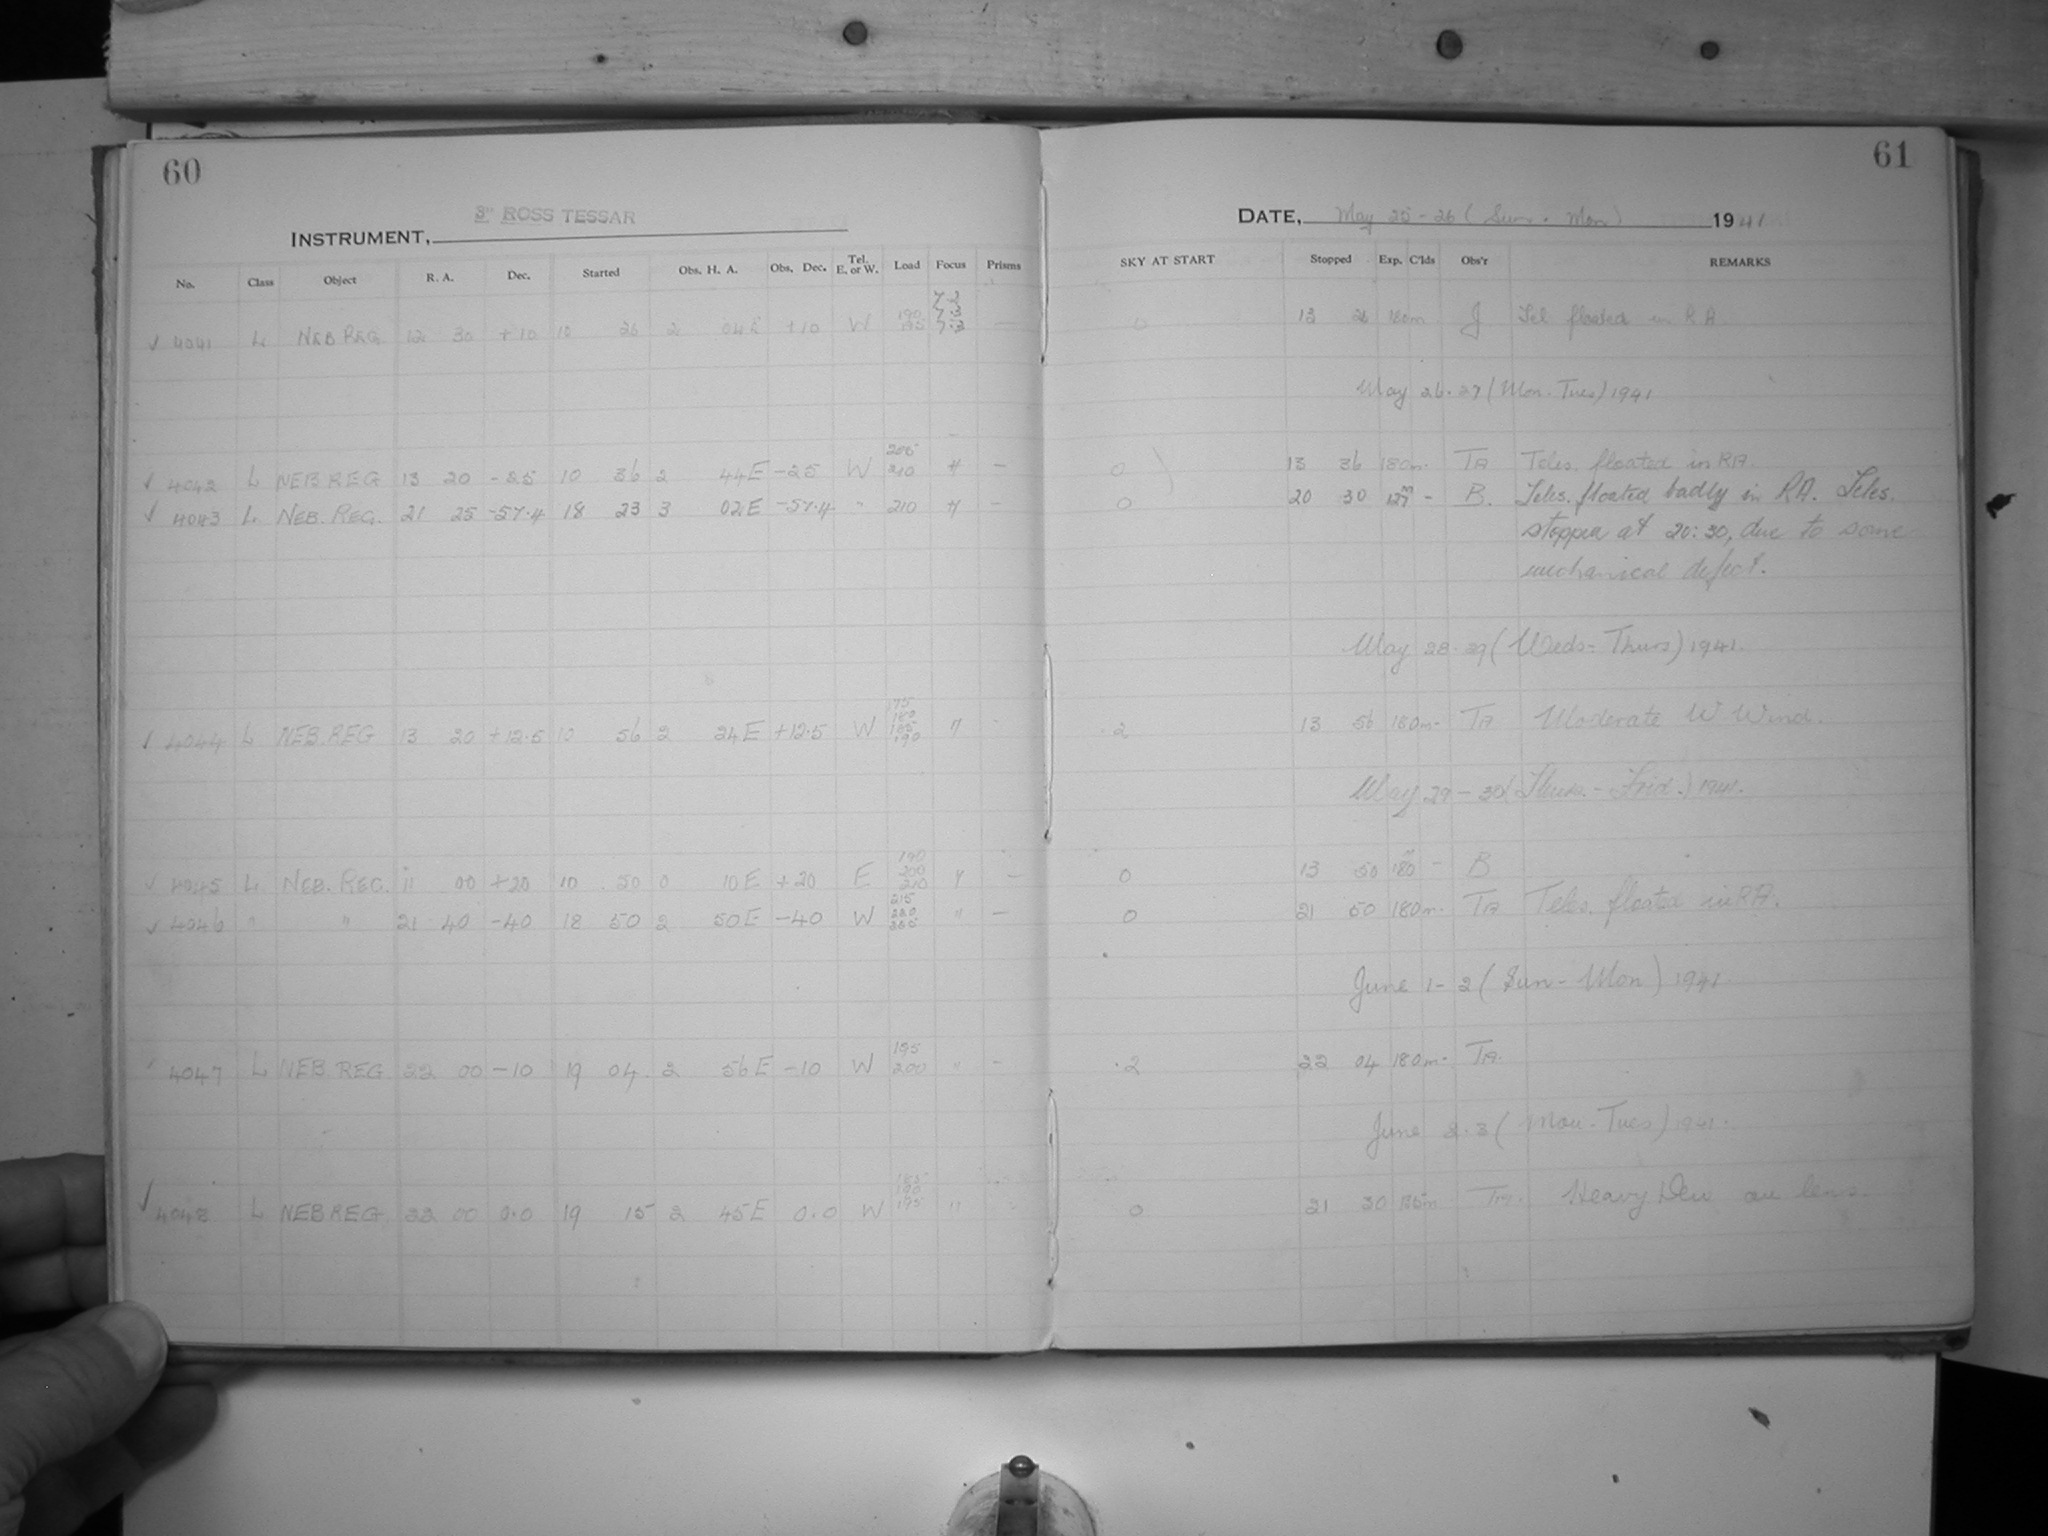 60
61
3" ROSS TESSAR
INSTRUMENT,
DATE, May 25-26 (Sun. Mon) 1941
No. Class Object R. A. Dec. Started Obs. H. A. Obs. Dec. Tel. E. or W. Load Focus Prisms SKY AT START Stopped Exp. C'lds Obs'r REMARKS
✓ 4041 L NEB REG 12 30 +10 10 26 2 04E +10 W 190 195 7.2 7.3 7.3 — 0 13 26 180m J Tel floated in R.A.
May 26.27 (Mon. Tues) 1941
✓ 4042 L NEB REG 13 20 -25 10 36 2 44E -25 W 205 210 " — 0 13 36 180m. TA Teles. floated in RA.
✓ 4043 L NEB. REG. 21 25 -57.4 18 23 3 02E -57.4 " 210 " — 0 20 30 127m - B. Teles. floated badly in RA. Teles.
stopped at 20:30, due to some
mechanical defect.
May 28.29 (Weds= Thurs) 1941.
✓ 4044 L NEB.REG 13 20 +12.5 10 56 2 24E +12.5 W 175 180 185 190 " .2 13 56 180m. TA Moderate W Wind.
May 29-30 (Thurs.-Frid.) 1941.
✓ 4045 L NEB. REG. 11 00 +20 10 50 0 10E +20 E 190 200 210 " — 0 13 50 180m - B
✓ 4046 " " 21 40 -40 18 50 2 50E -40 W 215 220 225 " — 0 21 50 180m. TA Teles. floated in RA.
June 1-2 (Sun-Mon) 1941
✓ 4047 L NEB REG 22 00 -10 19 04 2 56E -10 W 195 200 " - .2 22 04 180m. TA.
June 2.3 (Mon-Tues) 1941.
✓ 4048 L NEB REG 22 00 0.0 19 15 2 45E 0.0 W 185 190 195 " 0 21 30 135m TA. Heavy Dew on lens.